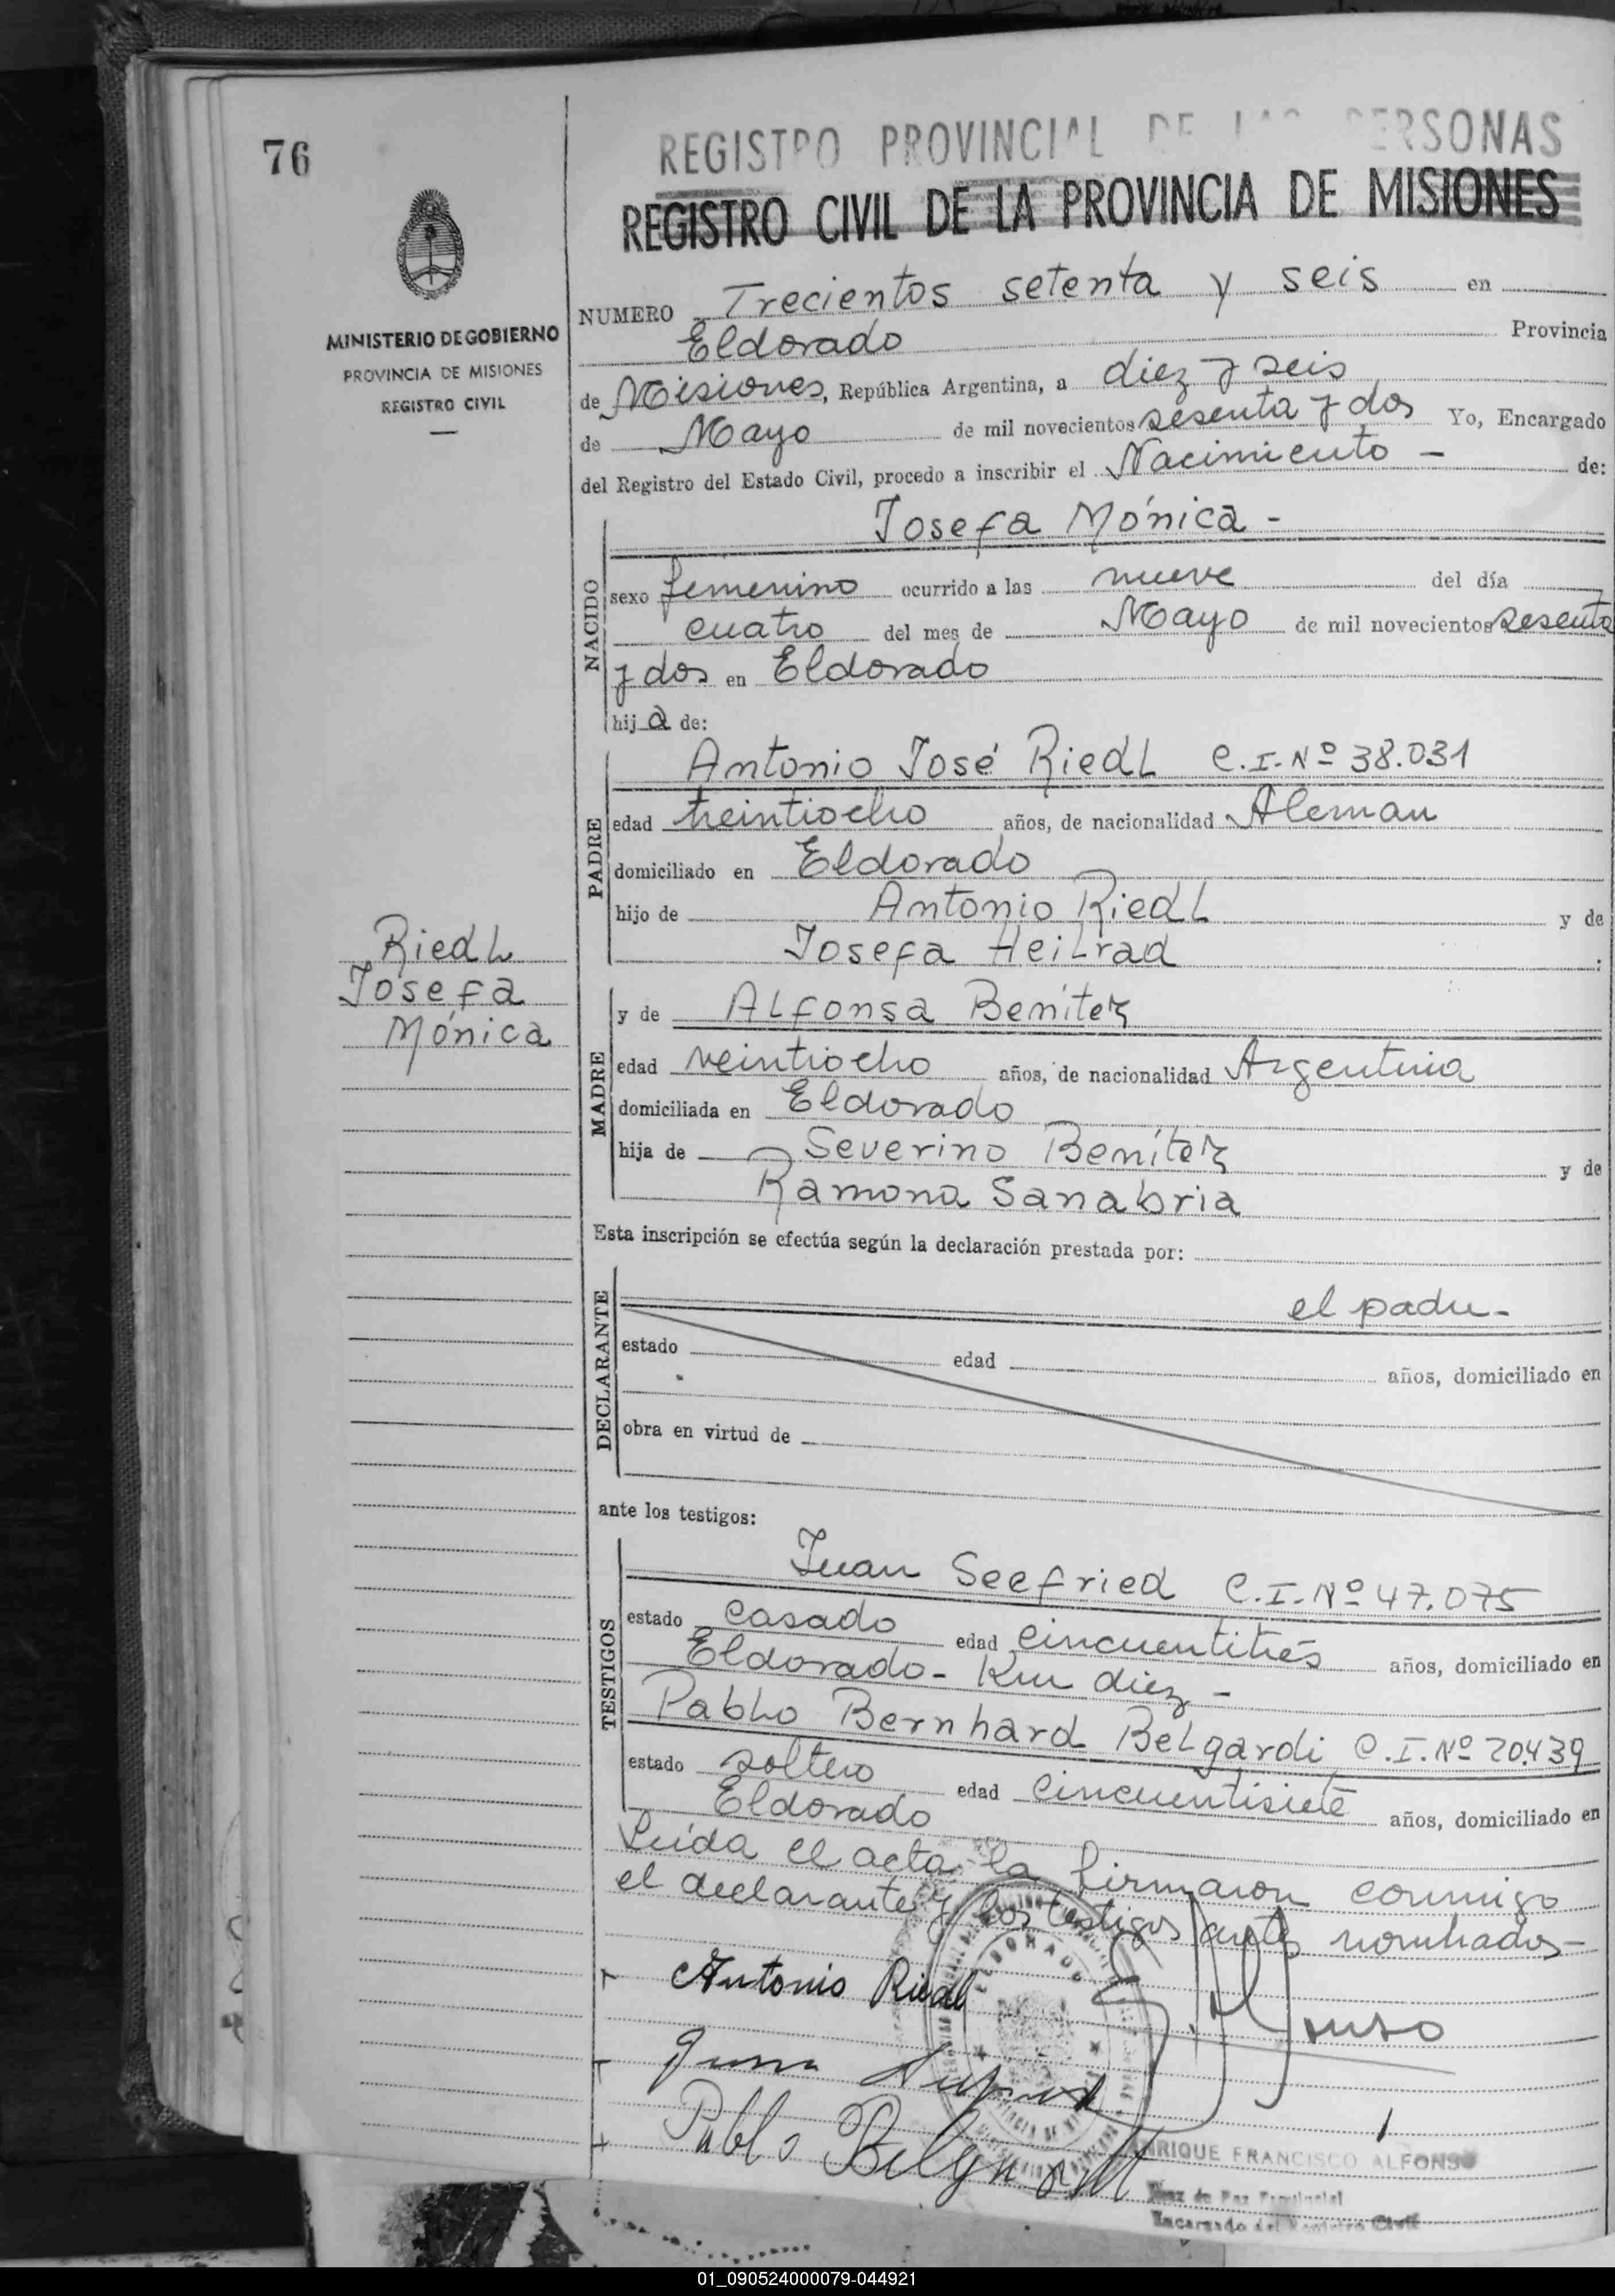 76
REGISTRO PROVINCIAL DE LAS PERSONAS
REGISTRO CIVIL DE LA PROVINCIA DE MISIONES
MINISTERIO DE GOBIERNO
PROVINCIA DE MISIONES
REGISTRO CIVIL
NUMERO Trecientos setenta y seis en
Eldorado Provincia
de Misiones, República Argentina, a diez y seis
de Mayo de mil novecientos sesenta y dos Yo, Encargado
del Registro del Estado Civil, procedo a inscribir el Nacimiento - de:
NACIDO
Josefa Mónica -
sexo femenino ocurrido a las nueve del día
cuatro del mes de Mayo de mil novecientos sesenta
y dos en Eldorado
hija de:
PADRE
Antonio José Riedl C.I. Nº 38.031
edad treintiocho años, de nacionalidad Aleman
domiciliado en Eldorado
hijo de Antonio Riedl y de
Josefa Heilrad :
Riedl
Josefa
Mónica
MADRE
y de Alfonsa Benítez
edad veintiocho años, de nacionalidad Argentina
domiciliada en Eldorado
hija de Severino Benítez y de
Ramona Sanabria
Esta inscripción se efectúa según la declaración prestada por:
DECLARANTE
el padre -
estado edad años, domiciliado en
obra en virtud de
ante los testigos:
TESTIGOS
Juan Seefried C.I. Nº 47.075
estado casado edad cincuentitrés años, domiciliado en
Eldorado - Km diez -
Pablo Bernhard Belgardi C.I. Nº 20.439
estado soltero edad cincuentisiete años, domiciliado en
Eldorado
Leída el acta la firmaron conmigo
el declarante y los testigos antes nombrados -
Antonio Riedl
Pablo Belgardt
ENRIQUE FRANCISCO ALFONSO
Juez de Paz Provincial
Encargado del Registro Civil
01_090524000079-044921